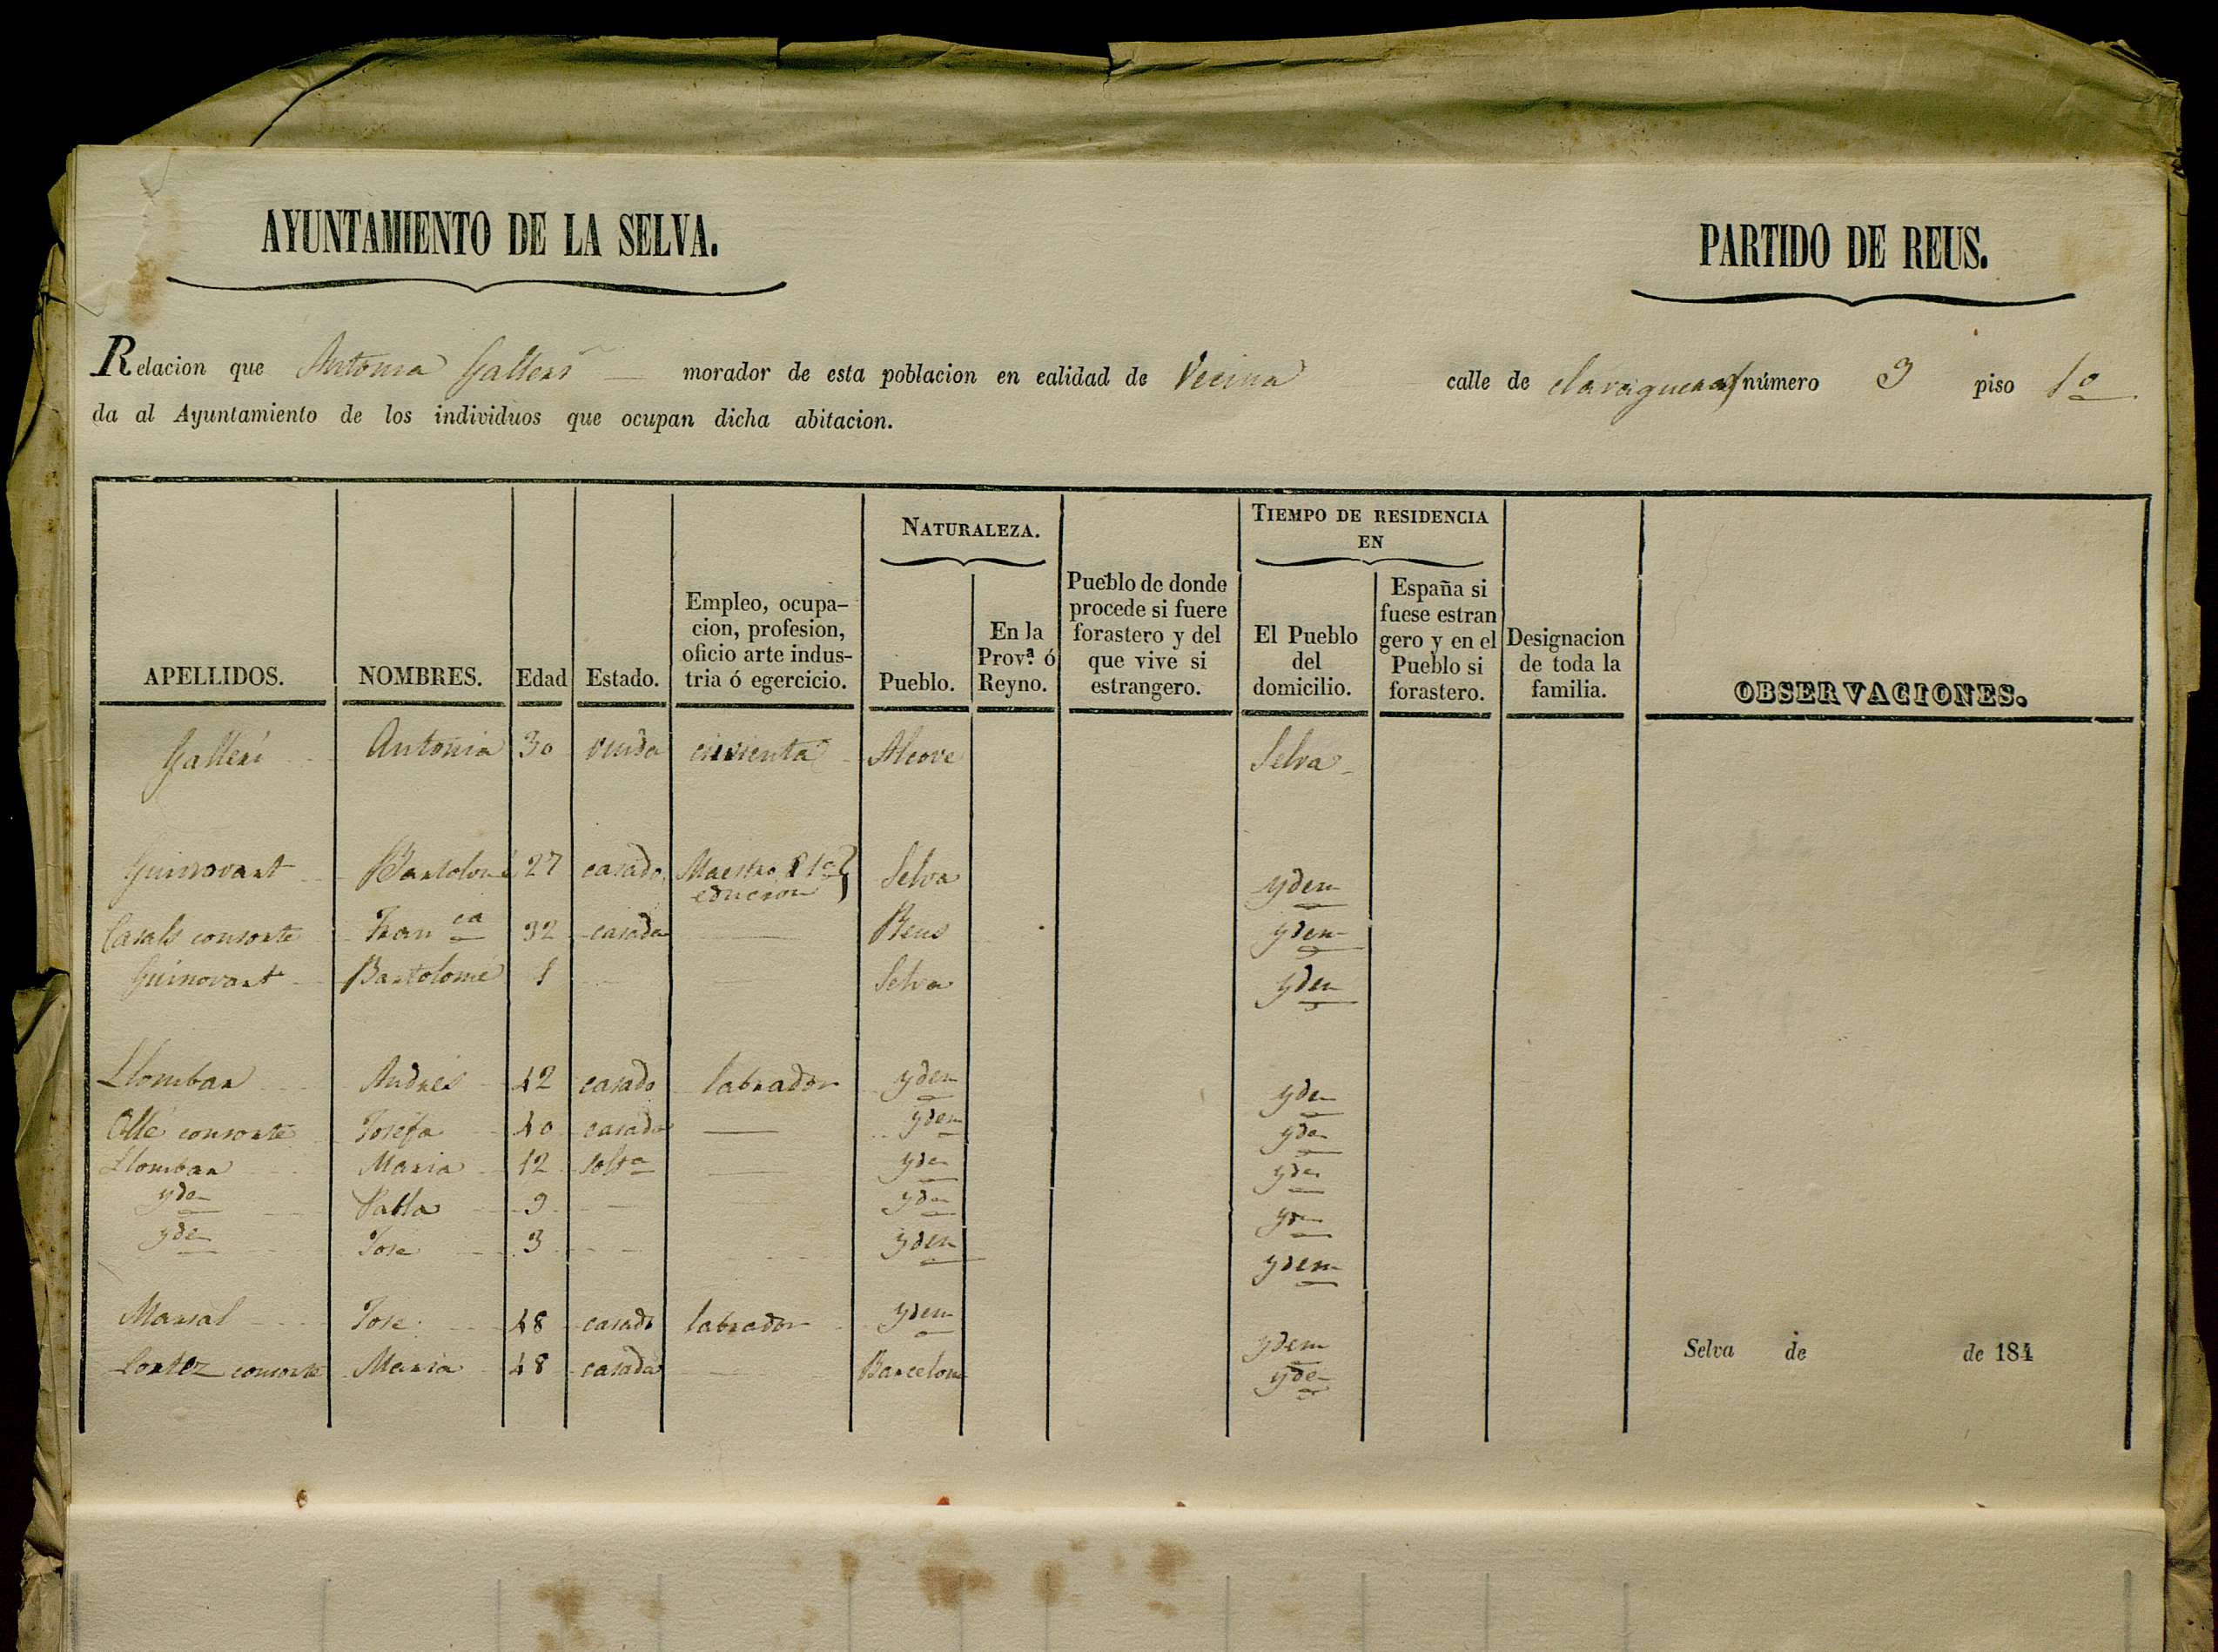 AYUNTAMIENTO DE LA SELVA. PARTIDO DE REUS.
Relacion que Antonia Galleri morador de esta poblacion en calidad de Vecina calle de número 9 piso 1º
da al Ayuntamiento de los individuos que ocupan dicha abitacion.
NATURALEZA. TIEMPO DE RESIDENCIA EN
APELLIDOS.
NOMBRES.
Edad
Estado.
Empleo, ocupa-
cion, profesion,
oficio arte indus-
tria ó egercicio.
Pueblo.
En la
Prov.ª ó
Reyno.
Pueblo de donde
procede si fuere
forastero y del
que vive si
estrangero.
El Pueblo
del
domicilio.
España si
fuese estran
gero y en el
Pueblo si
forastero.
Designacion
de toda la
familia.
OBSERVACIONES.
Galleri Antonia 30 viuda Alcove Selva
Guinovart Bartolomé 27 casado Maestro Selva ydem
Casals consorte Fran.ca 32 casada Reus ydem
Guinovart Bartolomé 1 Selva yden
Llombar Andres 42 casado labrador ydem yden
Ollé consorte Josefa 40 casada ydem yden
Llombar Maria 12 solt.a yden yden
yden Pabla 9 yden yden
yden Jose 3 ydem ydem
Marsal Jose 48 casado labrador ydem ydem
consorte Maria 48 casada Barcelona yden
Selva de de 184